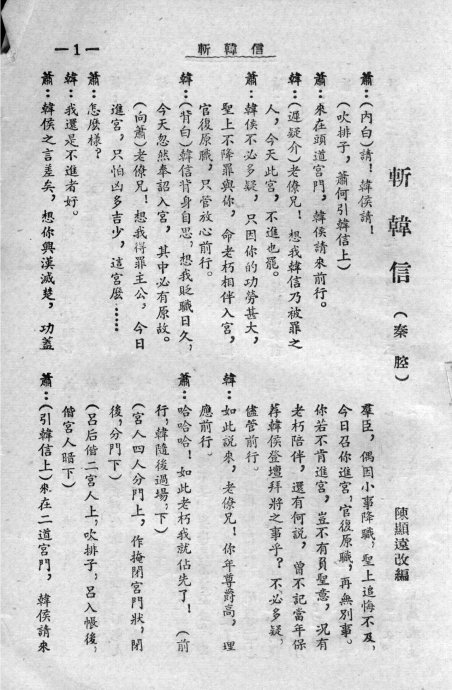 —1—
斬韓信
斬韓信(秦腔)
陳顯遠改編
蕭:(內白)請!韓侯請!
(吹排子,蕭何引韓信上)
蕭:來在頭道宮門,韓侯請來前行。
韓:(遲疑介)老僚兄!想我韓信乃被罪之
人,今天此宮,不進也罷。
蕭:韓侯不必多疑,只因你的功勞甚大,
聖上不降罪與你,命老朽相伴入宮,
官復原職,只管放心前行。
韓:(背白)韓信背身自思,想我貶職日久,
今天忽然奉詔入宮,其中必有原故。
(向蕭)老僚兄!想我得罪主公,今日
進宮,只怕凶多吉少,這宮麽……
蕭:怎麽樣?
韓:我還是不進者好。
蕭:韓侯之言差矣,想你興漢滅楚,功蓋
羣臣,偶因小事降職,聖上追悔不及,
今日召你進宮,官復原職,再無別事。
你若不肯進宮,豈不有負聖意,況有
老朽陪伴,還有何說,曾不記當年保
荐韓侯登壇拜將之事乎?不必多疑,
儘管前行。
韓:如此說來,老僚兄!你年尊爵高,理
應前行。
蕭:哈哈哈!如此老朽我就佔先了!(前
行,韓隨後過場,下)
(宮人四人分門上,作掩閉宮門狀,閉
後,分門下)
(呂后偕二宮人上,吹排子,呂入帳後,
偕宮人暗下)
蕭:(引韓信上)來在二道宮門,韓侯請來